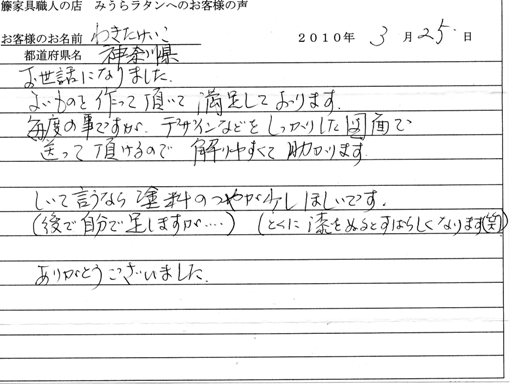 籐家具職人の店 みうらラタンへのお客様の声
お客様のお名前 わきたけいこ 2010年 3月25日
都道府県名 神奈川県
お世話になりました.
よいものを作って頂いて 満足しております.
毎度の事ですが、デザインなどを しっかりした図面で
送って頂けるので 解りやすくて 助かります.
しいて言うなら 塗料のつやが少しほしいです.
(後で自分で足しますが....) (とくに漆をぬるとすばらしくなります(笑))
ありがとうございました.